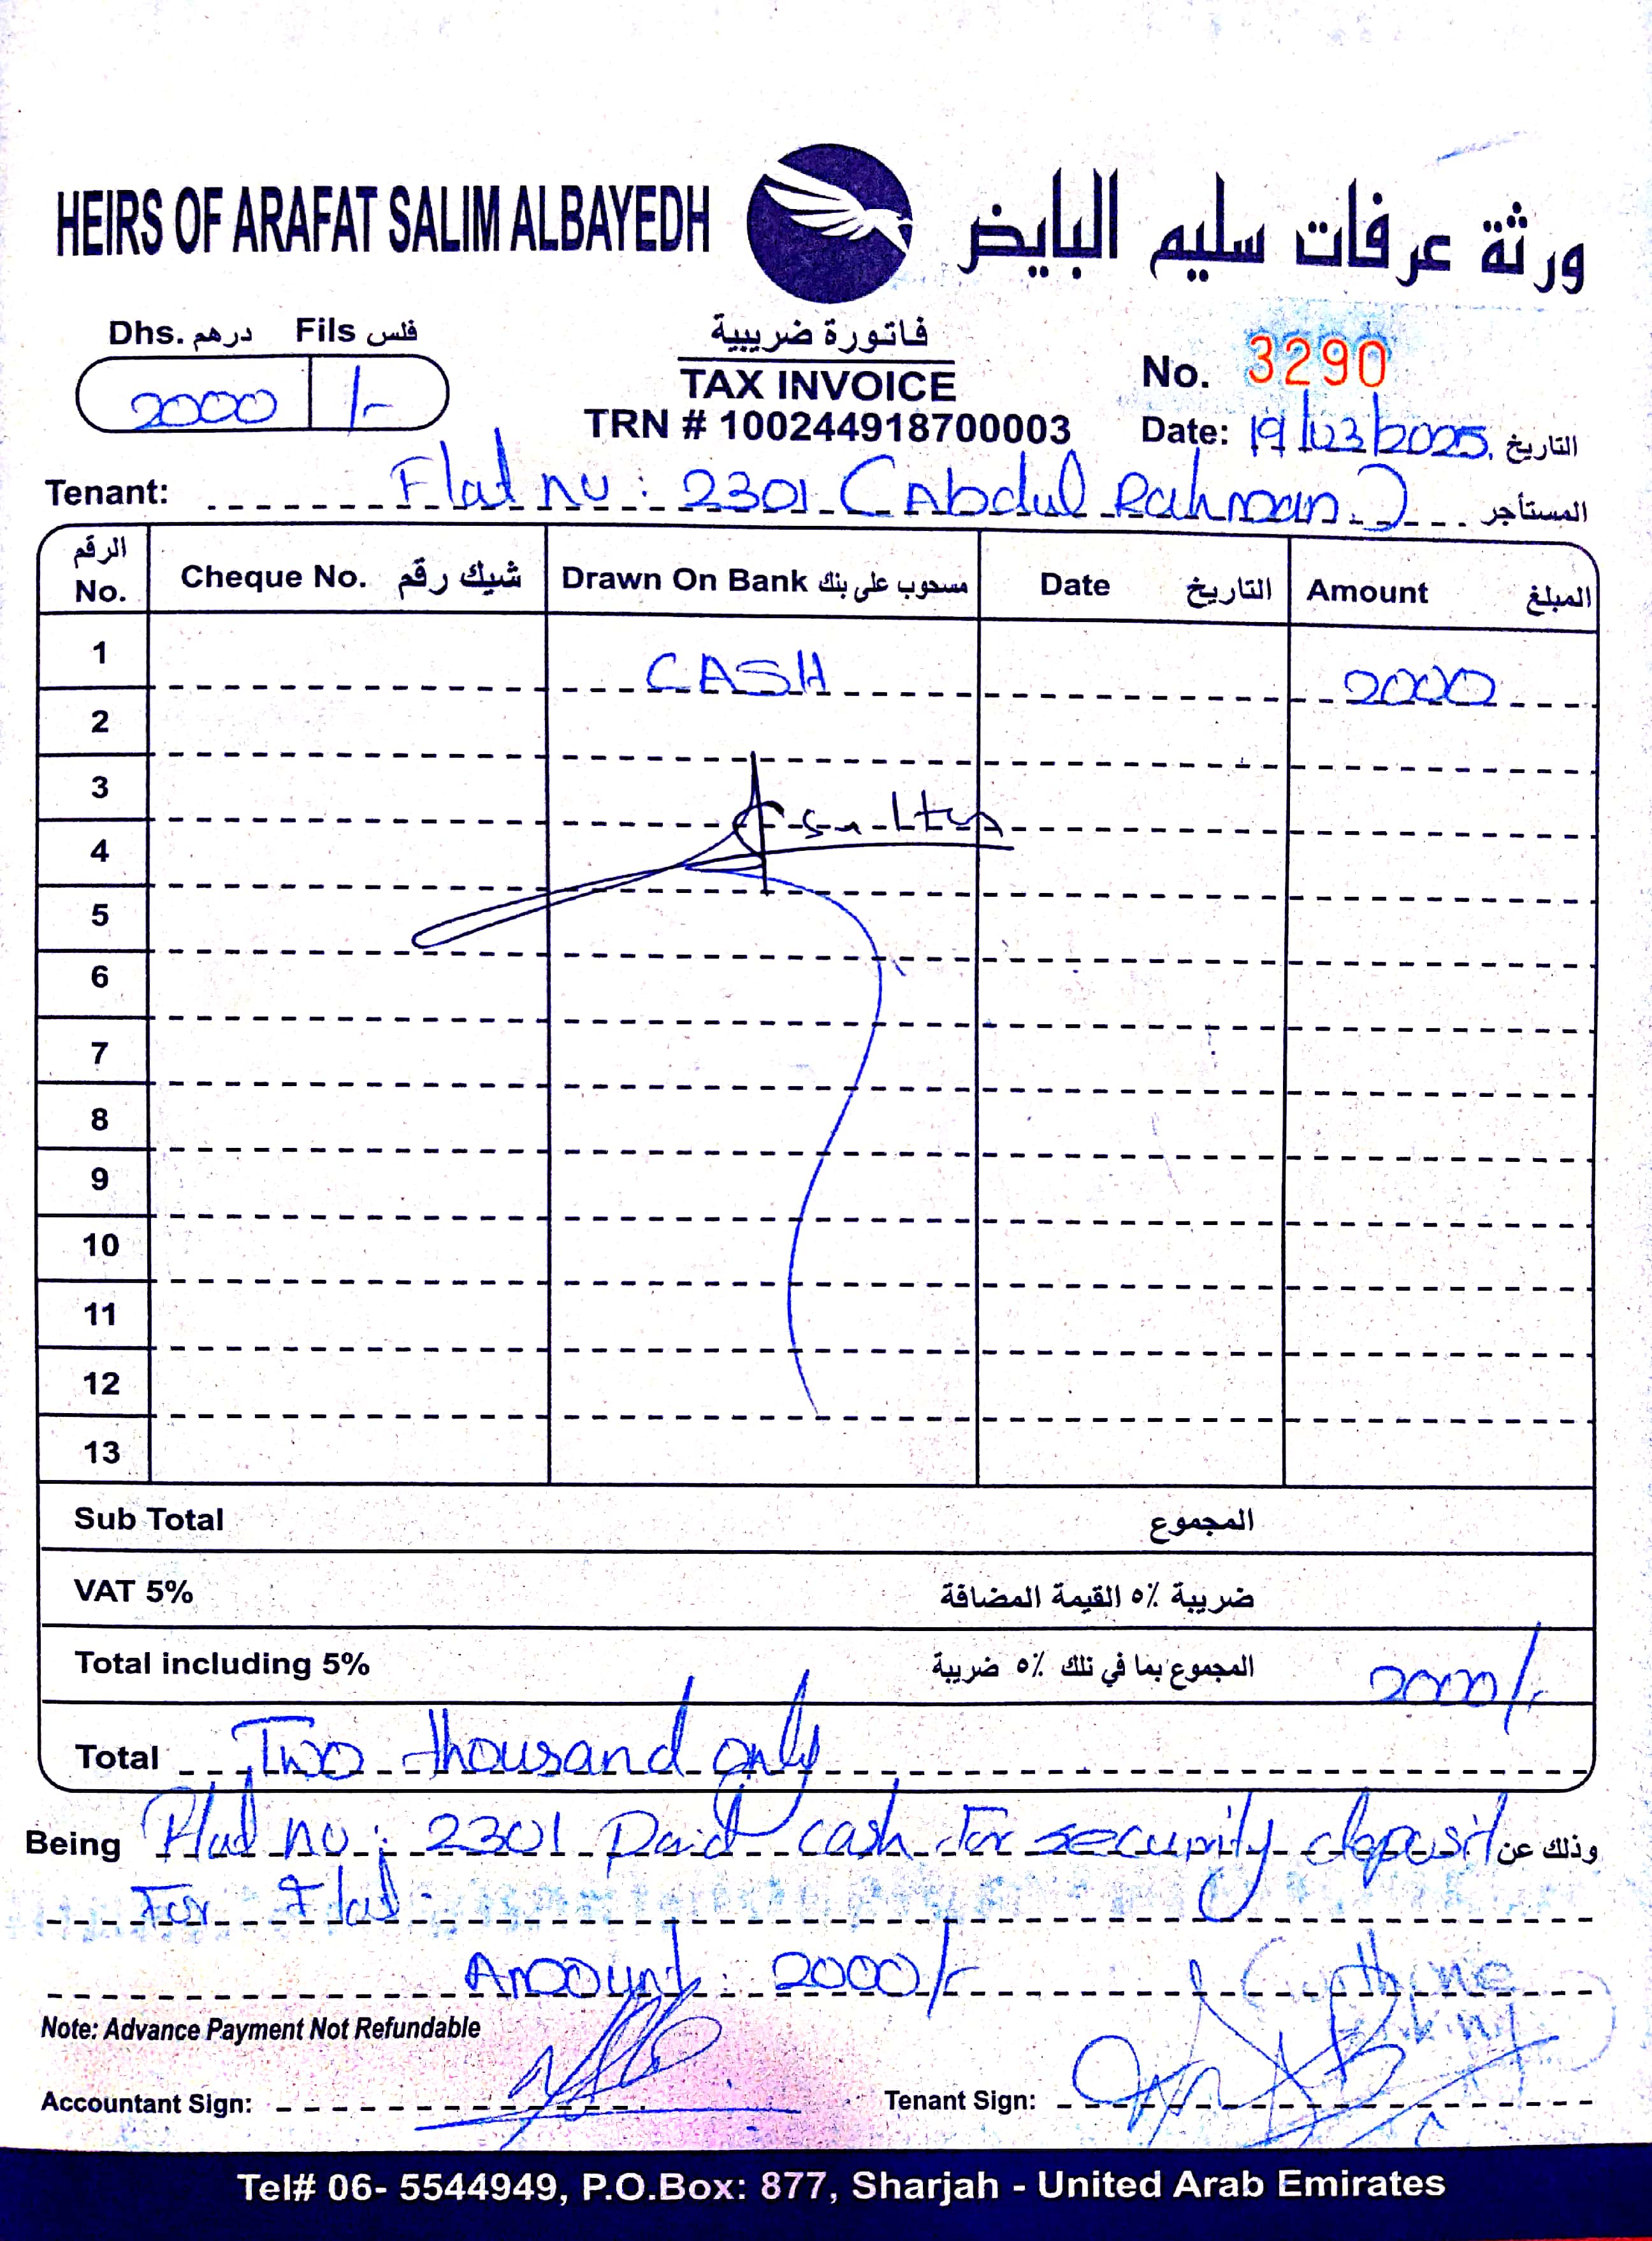 HEIRS OF ARAFAT SALIM ALBAYEDH ورثة عرفات سليم البايض
Dhs. درهم Fils فلس
2000 /-
فاتورة ضريبية
TAX INVOICE
TRN # 100244918700003
No. 3290
Date: 19/03/2025 التاريخ
Tenant: Flat no: 2301 (Abdul Rahman) المستأجر
الرقم No. Cheque No. شيك رقم Drawn On Bank مسحوب على بنك Date التاريخ Amount المبلغ
1 CASH 2000
2
3
4
5
6
7
8
9
10
11
12
13
Sub Total المجموع
VAT 5% ضريبة ٥٪ القيمة المضافة
Total including 5% المجموع بما في ذلك ٥٪ ضريبة 2000/-
Total Two thousand only
Being Flat no: 2301 Paid cash for security deposit وذلك عن
For Flat.
Amount: 2000/-
Note: Advance Payment Not Refundable
Accountant Sign: Tenant Sign:
Tel# 06- 5544949, P.O.Box: 877, Sharjah - United Arab Emirates